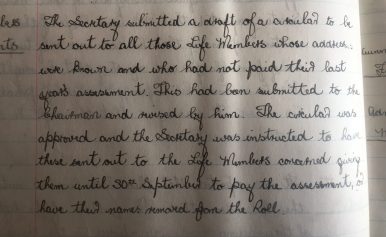 The Secretary submitted a draft of a circular to be
sent out to all those Life Members whose address:
were known and who had not paid their last
years assessment. This had been submitted to the
Chairman and revised by him. The circular was
approved and the Secretary was instructed to have
these sent out to the Life Members concerned giving
them until 30th September to pay the assessment, or
have their names removed from the Roll.